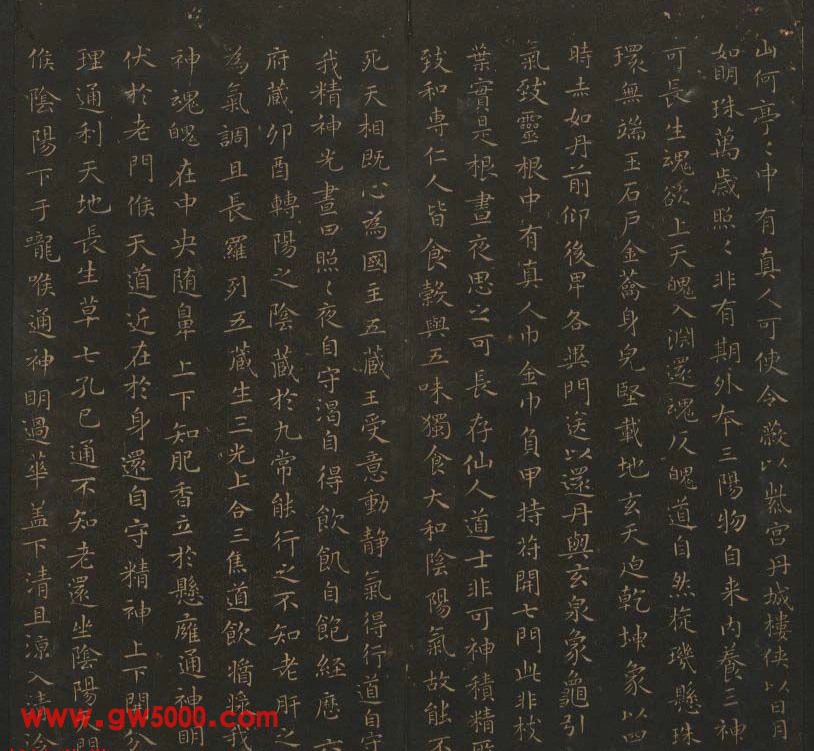 山何亭〻中有真人可使令蔽以紫宮丹城樓俠以日月
如明珠萬歲照〻非有期外本三陽物自来内養三神
可長生魂欲上天魄入淵還魂反魄道自然璇璣懸珠
環無端玉石戶金籥身皃堅載地玄天迫乾坤象以四
時赤如丹前仰後卑各異門送以還丹與玄泉象龜引
氣致靈根中有真人巾金巾負甲持苻開七門此非枝
葉實是根晝夜思之可長存仙人道士非可神積精所
致和専仁人皆食穀與五味獨食大和陰陽氣故能不
死天相既心為國主五蔵王受意動静氣得行道自守
我精神光晝日照〻夜自守渴自得飲飢自飽經歷六
府藏卯酉轉陽之陰藏於九常能行之不知老肝之
為氣調且長羅列五蔵生三光上合三焦道飲醬漿我
神魂魄在中央随鼻上下知肥香立於懸廱通神明
伏於老門候天道近在於身還自守精神上下開分
理通利天地長生草七孔已通不知老還坐陰陽天門
候陰陽下于嚨喉通神明過華盖下清且涼入清泠
www.gw5000.com